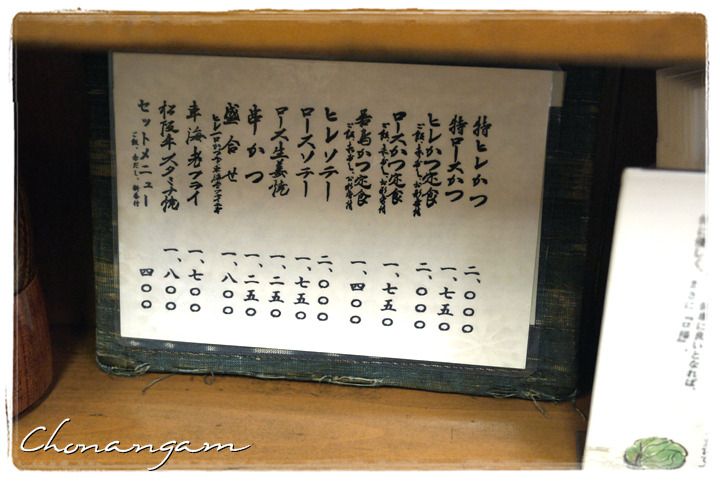 特ヒレかつ 二、〇〇〇
特ロースかつ 一、七五〇
ヒレかつ定食 二、〇〇〇
ご飯、赤だし、お新香付
ロースかつ定食 一、七五〇
ご飯、赤だし、お新香付
かつ定食 一、四〇〇
ご飯、赤だし、お新香付
ヒレソテー 二、〇〇〇
ロースソテー 一、七五〇
ロース生姜焼 一、二五〇
串かつ 一、二五〇
盛合せ 一、八〇〇
車海老フライ 一、七〇〇
松阪牛スタミナ焼 一、八〇〇
セットメニュー 四〇〇
ご飯、赤だし、新香付
Chonangam